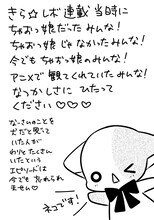 きら☆レボ連載当時に
ちゃおっ娘だったみんな!
ちゃおっ娘じゃなかったみんな!
今でもちゃおっ娘のみんな!
アニメで観てくれていたみんな!
なつかしさにひたって
ください♡♡♡
なーさんのことを
犬だと思って
いた人が
わりとたくさん
いたという
エピソードは
今でも忘れられ
ません♡
ネコです!